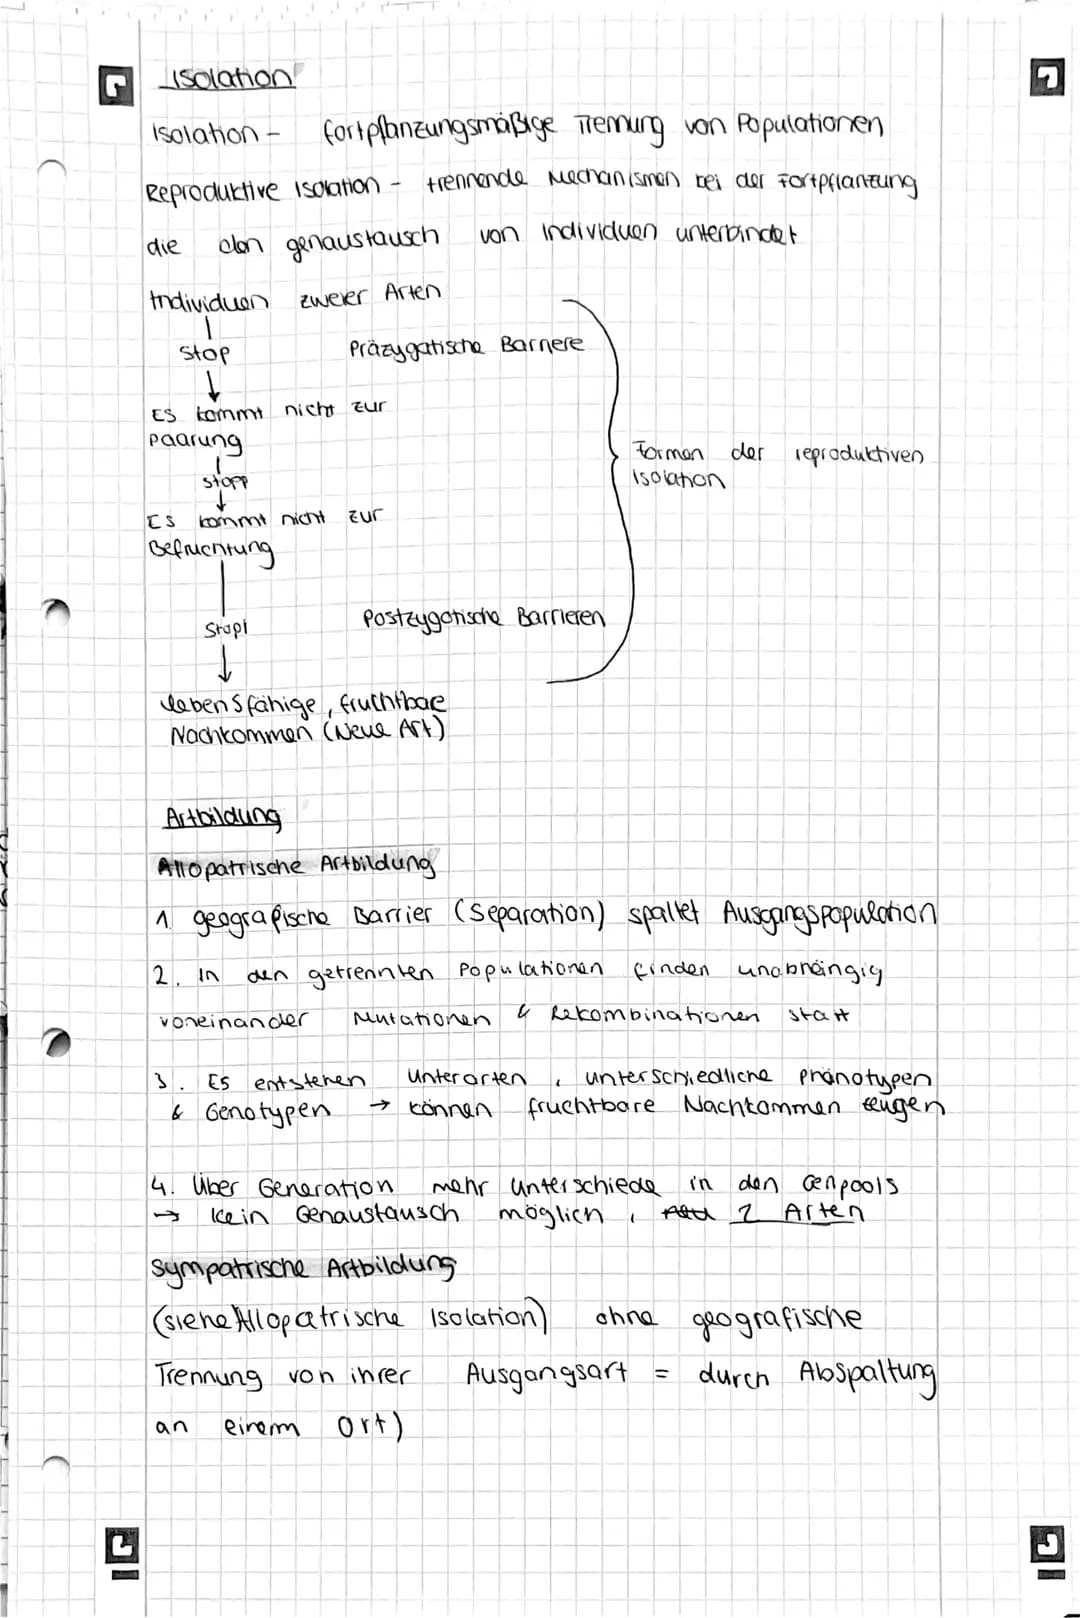 Isolation
Isolation - fortpflanzungsmäßige Trennung von Populationen
Reproduktive Isolation - trennende Mechanismen bei der Fortpflanzung
die den genaustausch von Individuen unterbindet
Individuen zweier Arten
Stop Präzygatische Barriere
Es kommt nicht zur
Paarung
Formen der reproduktiven
Isolation
stopp
Es kommt nicht zur
Befruchtung
Stop! Postzygotische Barrieren
lebensfähige, fruchtbare
Nachkommen (Neue Art)
Artbildung
Allopatrische Artbildung
1. geografische Barrier (Separation) spaltet Ausgangspopulation
2. In den getrennten Populationen finden unabhängig
voneinander Mutationen & Rekombinationen statt
3. Es entstehen Unterarten, unterschiedliche Phänotypen
& Genotypen → können fruchtbare Nachkommen zeugen
4. Über Generation mehr Unterschiede in den Genpools
→ Kein Genaustausch möglich, 2 Arten
Sympatrische Artbildung
(siehe Allopatrische Isolation) ohne geografische
Trennung von ihrer Ausgangsart = durch Abspaltung
an einem Ort)